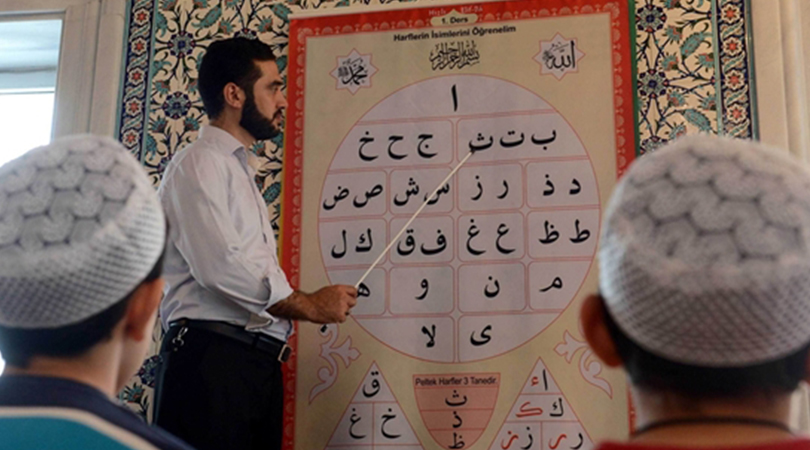 1. Ders
Harflerin İsimlerini Öğrenelim
الله
بسم الله الرحمن الرحيم
محمد
ا
ب ت ث ج ح خ
د ذ ر ز س ش ص ض
ط ظ ع غ ف ق ك ل
م ن و ه
ى لا
ق
خ غ
Peltek Harfler 3 Tanedir.
ث
ذ
ظ
ك ک
ر ر ز ز